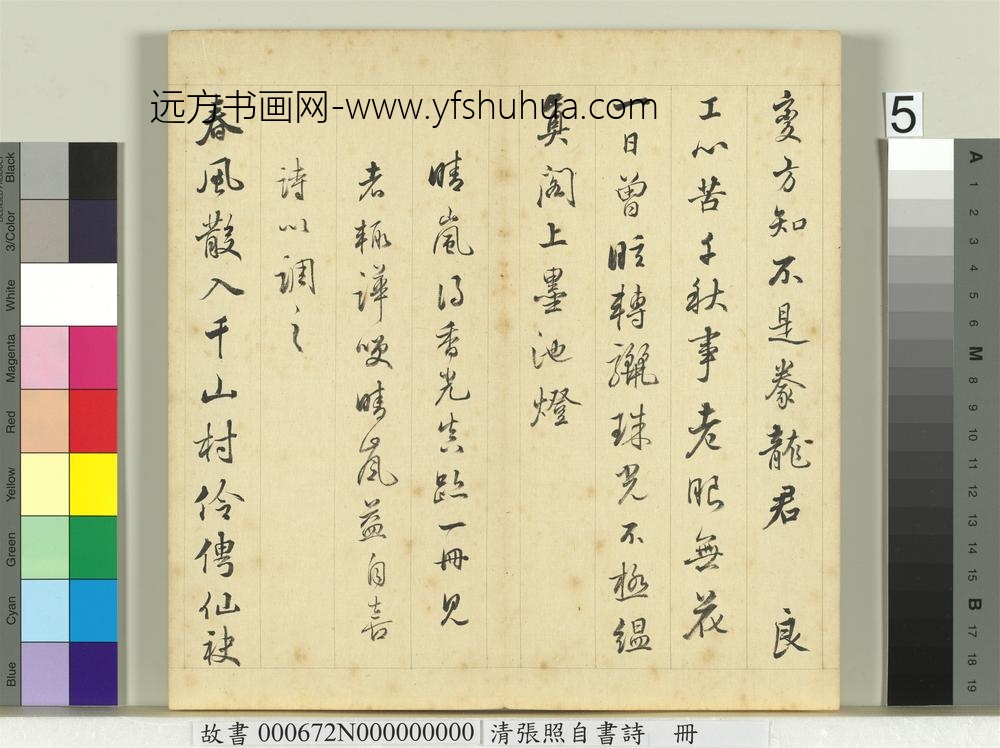 变方知不是豢龍君 良
工心苦千秋事老眼無花
一日曾眩轉驪珠光不極緼
真閣上墨池燈
晴嵐得香光真跡一冊見
者輒譁咲晴嵐益自喜
詩以調之
春風散入千山村伶俜仙袂
远方书画网-www.yfshuhua.com
5
Black
3/Color
White
Magenta
Red
Yellow
Green
Cyan
Blue
A
1
2
3
4
5
6
M
8
9
10
11
12
13
14
15
B
17
18
19
故書 000672N000000000 清張照自書詩 冊